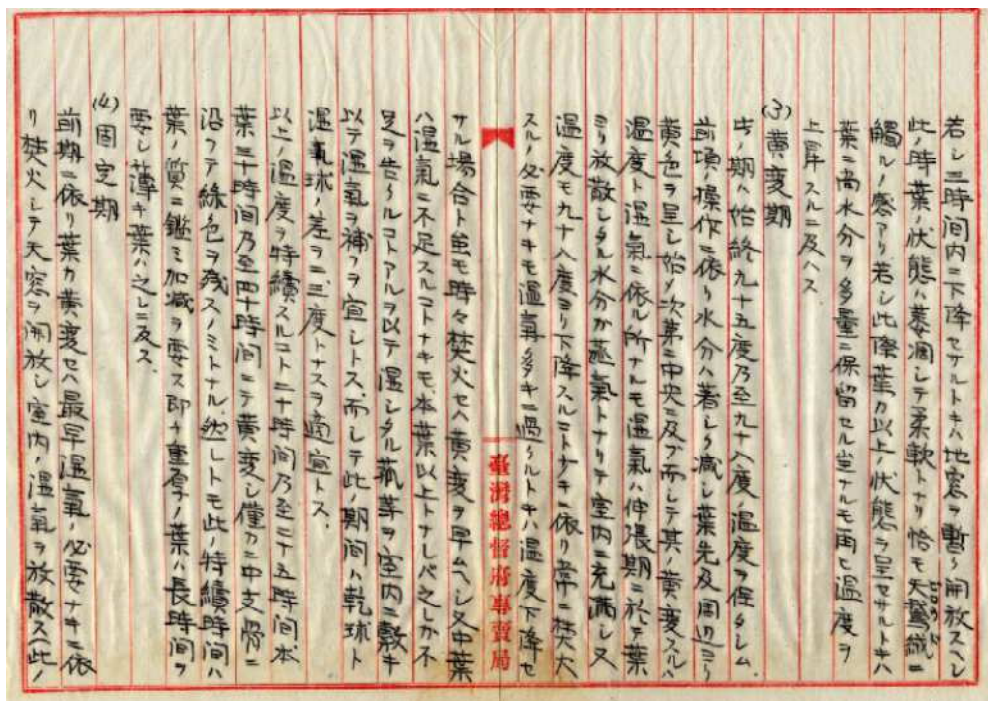 若シ三時间内ニ下降セザルトキハ地窓ヲ暫ク開放スヘシ
此ノ時葉ノ状態ハ萎凋シテ柔軟トナリ恰モ天鵞絨ニ
觸ルヽ感アリ若シ此際葉カ以上ノ状態ヲ呈セサルトキハ
葉ニ尚水分ヲ多量ニ保留セル豈ナルモ再ヒ温度ヲ
上昇スルニ及ハス
(3)黄変期
此ノ期ハ始終九十五度乃至九十八度ノ温度ヲ保タレム
前項ノ操作ニ依リ水分ハ著シク減シ葉先及周辺ヨリ
黄色ヲ呈シ始メ次第ニ中央ニ及ブ而シテ其ノ黄変スルハ
温度ト湿氣ニ依ル所ナルモ湿氣ハ伸張期ニ於テ葉
ヨリ放散シタル水分が蒸氣トナリテ室内ニ充満シ又
温度モ九十八度ヨリ下降スルコトナキニ依リ常ニ焚火
スルノ必要ナキモ湿氣多キニ過クルトキハ温度下降セ
臺灣總督府專賣局
サル場合ト雖モ時々焚火セハ黄変ヲ早ムヘシ又中葉
ハ湿氣ニ不足スルコトナキモ本葉以上トナレバ之レカ不
足ヲ告クルコトアルヲ以テ湿シタル菰莚ヲ室内ニ敷キ
以テ湿氣ヲ補フヲ宜シトス而シテ此ノ期间ハ乾球ト
湿氣球ノ差ヲ二、三度トナスヲ適宜トス
以上ノ温度ヲ持續スルコト二十時间乃至二十五時间本
葉三十時间乃至四十時间ニテ黄変シ僅カニ中支骨ニ
沿フテ緑色ヲ残スノミトナル然レトモ此ノ持續時间ハ
葉ノ質ニ鑑ミ加減ヲ要ス即チ重厚ノ葉ハ長時间ヲ
要シ薄キ葉ハ之レニ反ス
(4)固定期
前期ニ依リ葉カ黄変セハ最早湿氣ノ必要ナキニ依
リ焚火シテ天窓ヲ開放シ室内ノ湿氣ヲ放散ス此ノ